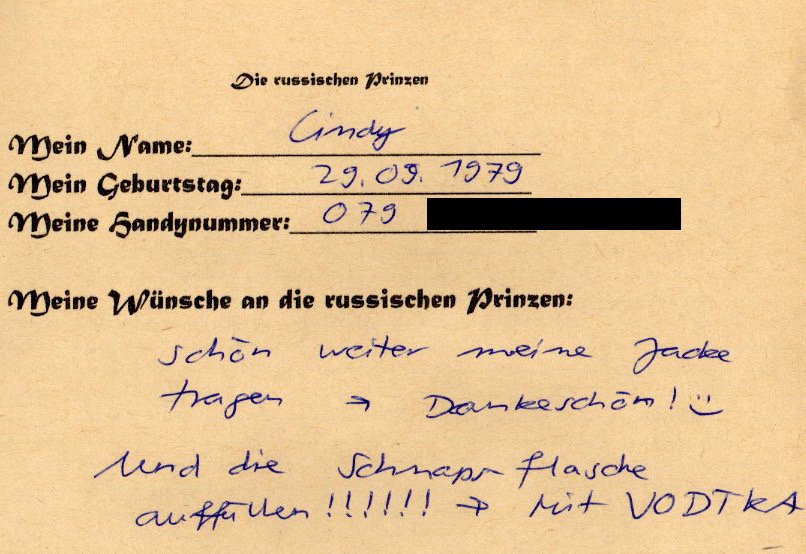 Die russischen Prinzen
Mein Name: Cindy
Mein Geburtstag: 29.09.1979
Meine Handynummer: 079
Meine Wünsche an die russischen Prinzen:
schön weiter meine Jacke
tragen → Dankeschön! :)
Und die Schnapsflasche
auffüllen !!!!!! → Mit VODTKA